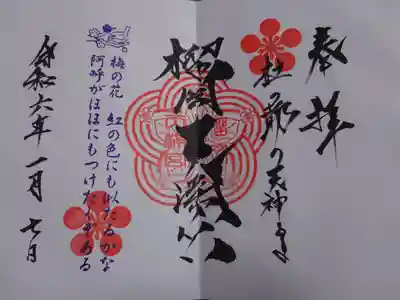 奉拝
杜の都の天神さま
榴岡天満宮
梅の花 紅の色にも似たるかな
阿呼がほほにもつけたくぞある
令和六年一月七日